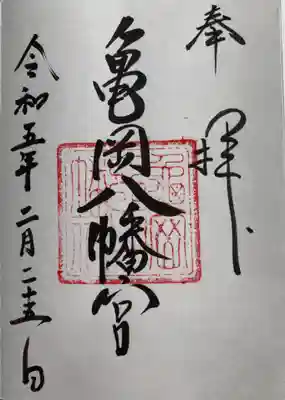 奉拝
亀岡八幡宮
令和五年二月二十五日